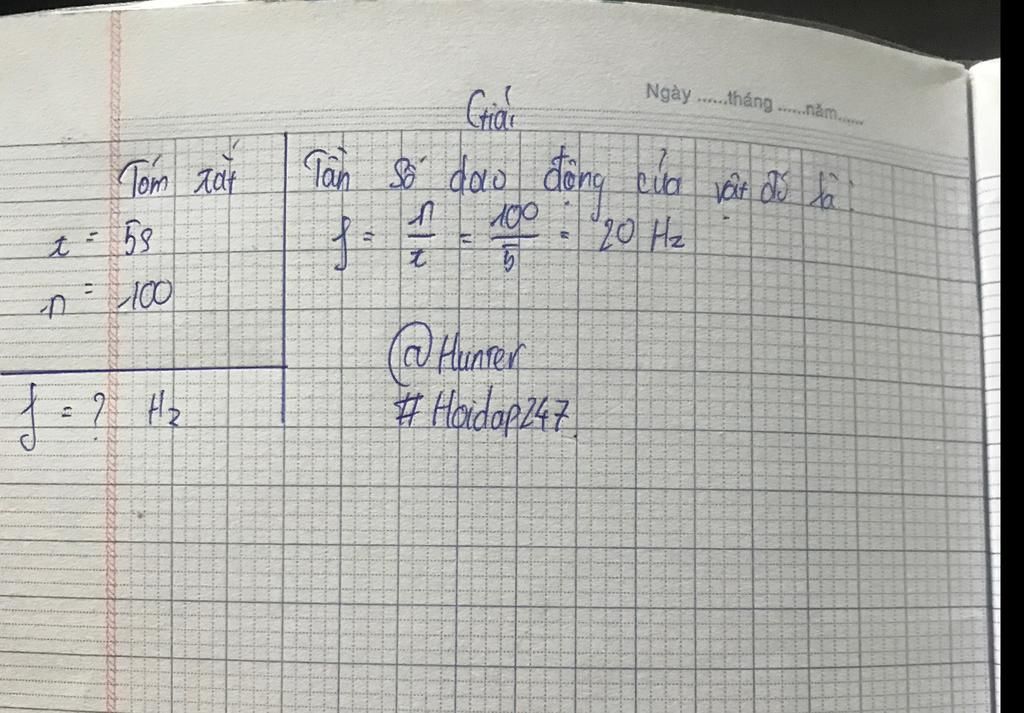 Ngày ......tháng ......năm......
Giải
Tóm tắt
t = 5s
n = 100
f = ? Hz
Tần số dao động của vật đó là:
f = n/t = 100/5 = 20 Hz
@Hunter
#Hoidap247